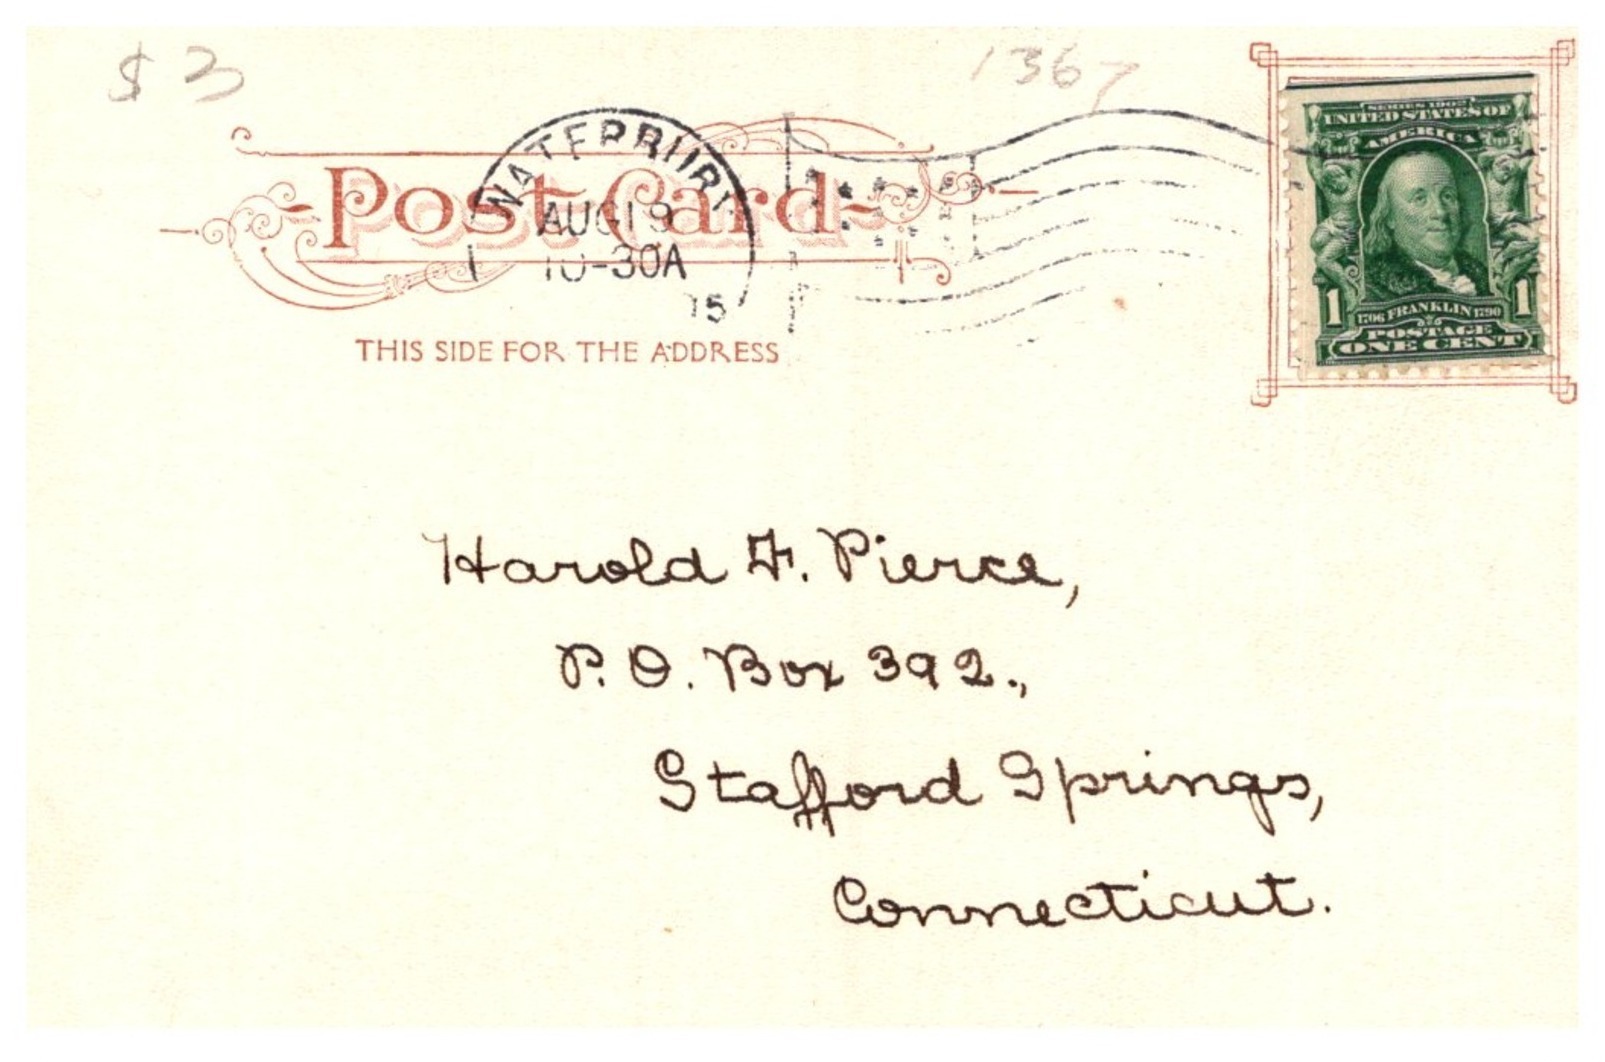 $3
1367
WATERBURY
AUG 19
10-30A
Post Card
THIS SIDE FOR THE ADDRESS
SERIES 1902
UNITED STATES OF
AMERICA
1 1
1706 FRANKLIN 1790
POSTAGE
ONE CENT
Harold F. Pierce,
P.O. Box 392.,
Stafford Springs,
Connecticut.